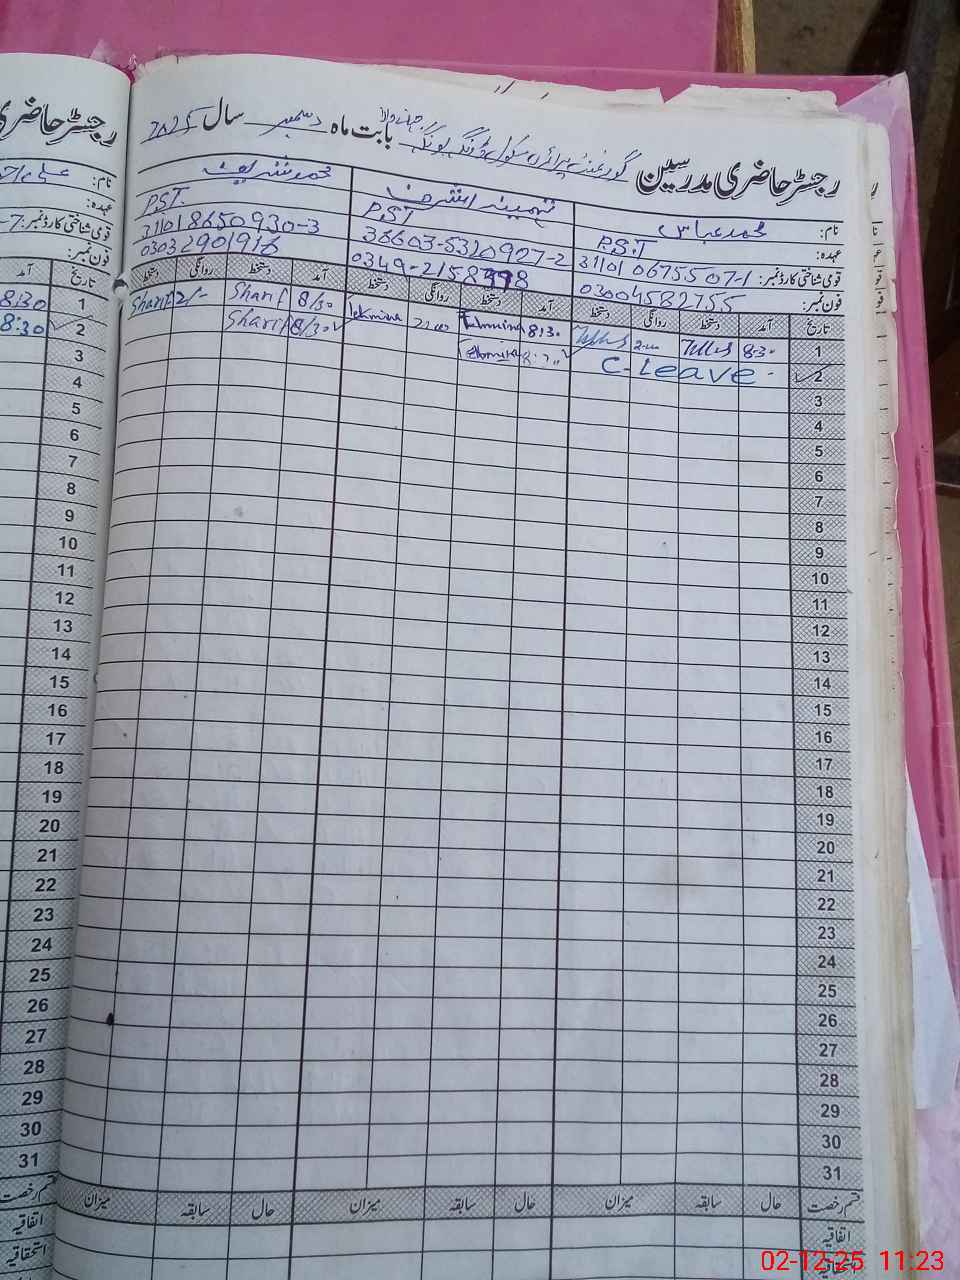 رجسٹر حاضری مدرسین گورنمنٹ پرائمری سکول ڈونگہ بونگہ بابت ماہ دسمبر سال 2025
نام: محمد عباس
عہدہ: P.S.T
قومی شناختی کارڈ نمبر: 31101 0675507-1
فون نمبر: 03004582755
تہمینہ اشرف
P.ST
36603-5320927-2
0349-2158998
محمد شریف
P.ST.
31101 8650930-3
0303 2901916
تاریخ آمد دستخط روانگی دستخط آمد دستخط روانگی دستخط آمد دستخط روانگی دستخط
1 8-30 2-00 8:30 Tehmina 2:00 8/30 Sharif 2/- Sharif
2 C-Leave Tehmina 8/30 Sharif
3
4
5
6
7
8
9
10
11
12
13
14
15
16
17
18
19
20
21
22
23
24
25
26
27
28
29
30
31
قسم رخصت حال سابقہ میزان حال سابقہ میزان حال سابقہ میزان
اتفاقیہ
استحقاقیہ
رجسٹر حاضری
نام:
عہدہ:
قومی شناختی کارڈ نمبر:
فون نمبر:
تاریخ آمد
1 8:30
2 8:30
3
4
5
6
7
8
9
10
11
12
13
14
15
16
17
18
19
20
21
22
23
24
25
26
27
28
29
30
31
قسم رخصت
اتفاقیہ
استحقاقیہ
02-12-25 11:23